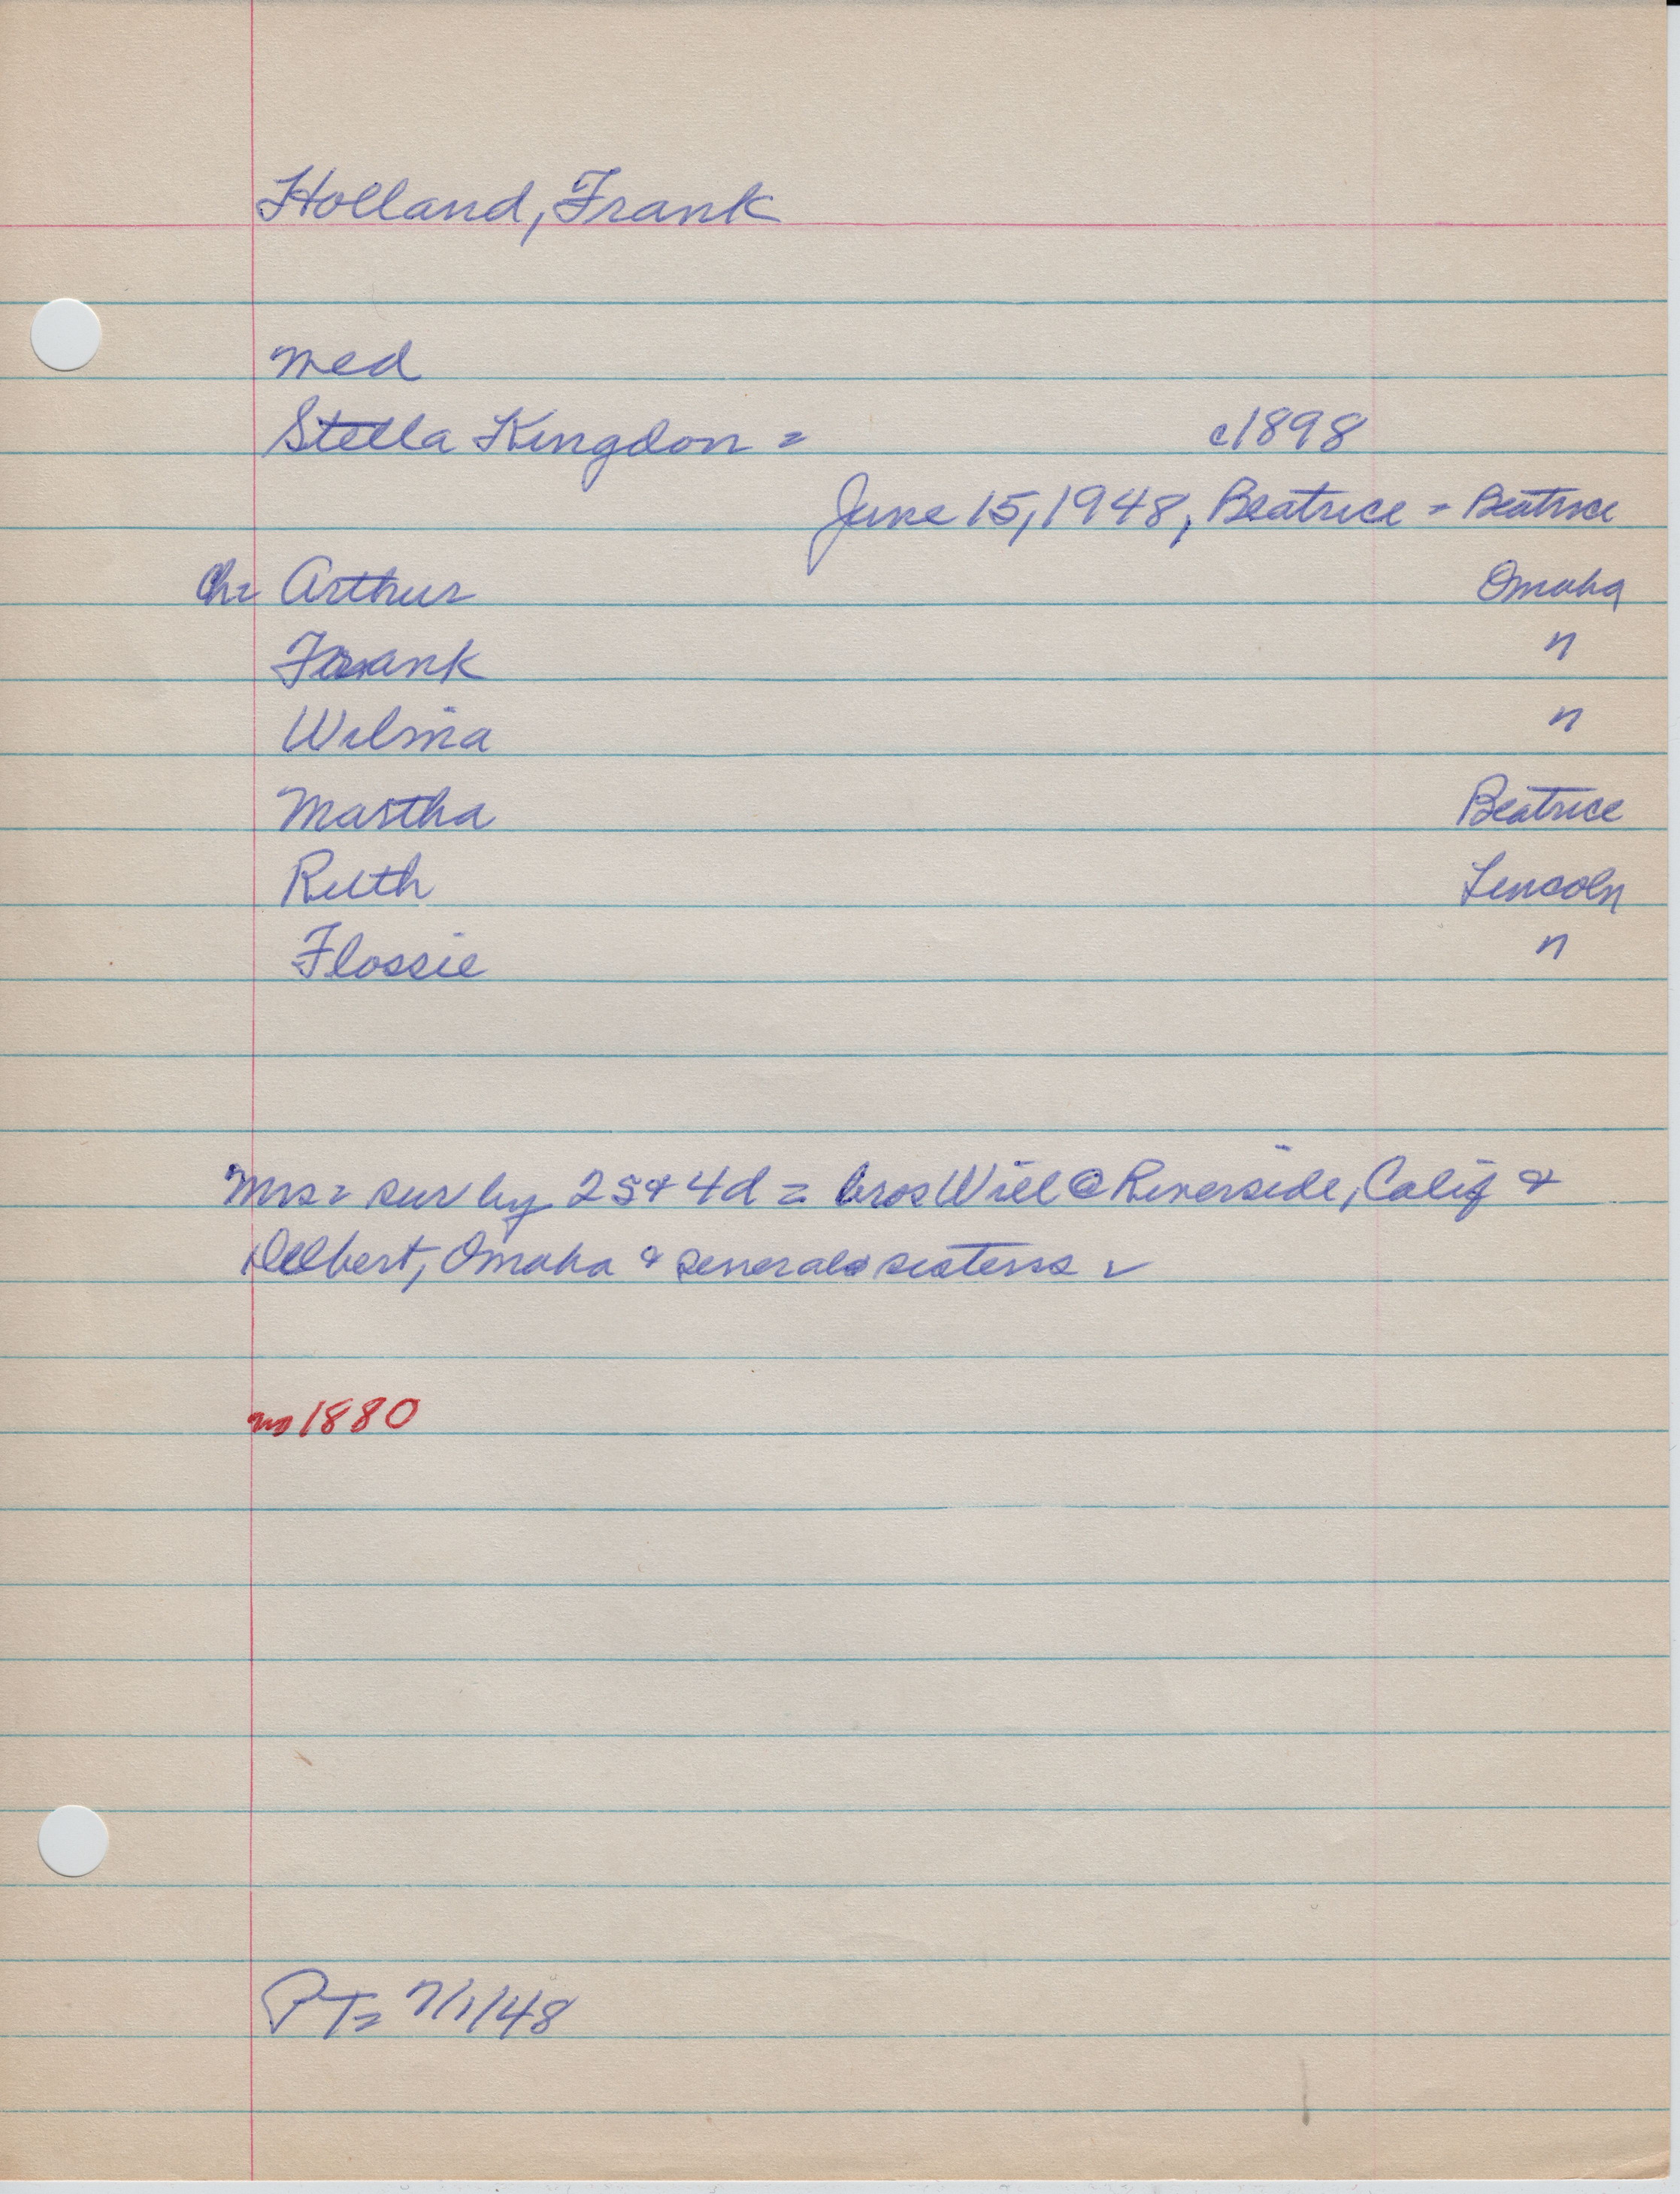 Holland, Frank
med
Stella Kingdon = c1898
June 15, 1948, Beatrice - Beatrice
Ch= Arthur Omaha
Frank "
Wilma "
Martha Beatrice
Ruth Lincoln
Flossie "
Mrs= sur by 2s & 4d = bros Will @ Riverside, Calif &
Delbert, Omaha & several sisters
no 1880
PT= 7/1/48